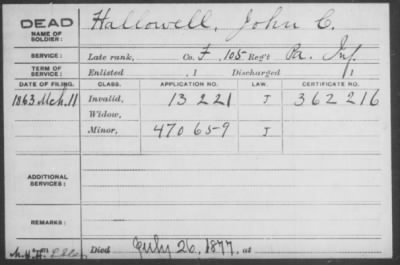 DEAD
NAME OF SOLDIER:
Hallowell, John C.
SERVICE: Late rank, Co. F, 105 Reg't Pa. Inf.
TERM OF SERVICE: Enlisted , 1 Discharged , 1
DATE OF FILING. CLASS. APPLICATION NO. LAW. CERTIFICATE NO.
1863 Mch. 11 Invalid, 13 221 J 362 216
Widow,
Minor, 470 659 J
ADDITIONAL SERVICES:
REMARKS:
Died July 26, 1877, at